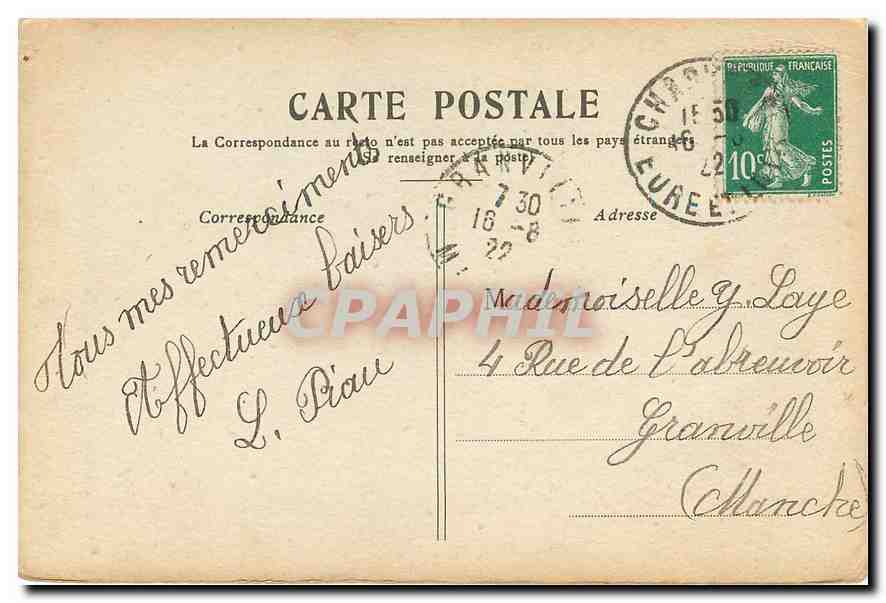 CARTE POSTALE
La Correspondance au recto n'est pas acceptée par tous les pays étrangers
(Se renseigner à la poste)
REPUBLIQUE FRANÇAISE
10c
POSTES
15 30
16
22
EURE ET
GRANVILLE
7 30
16 -8
22
Correspondance
Adresse
Tous mes remerciments
Affectueux baisers
L. Piau
Mademoiselle Y. Laye
4 Rue de l'abreuvoir
Granville
(Manche)
CPAPHIL